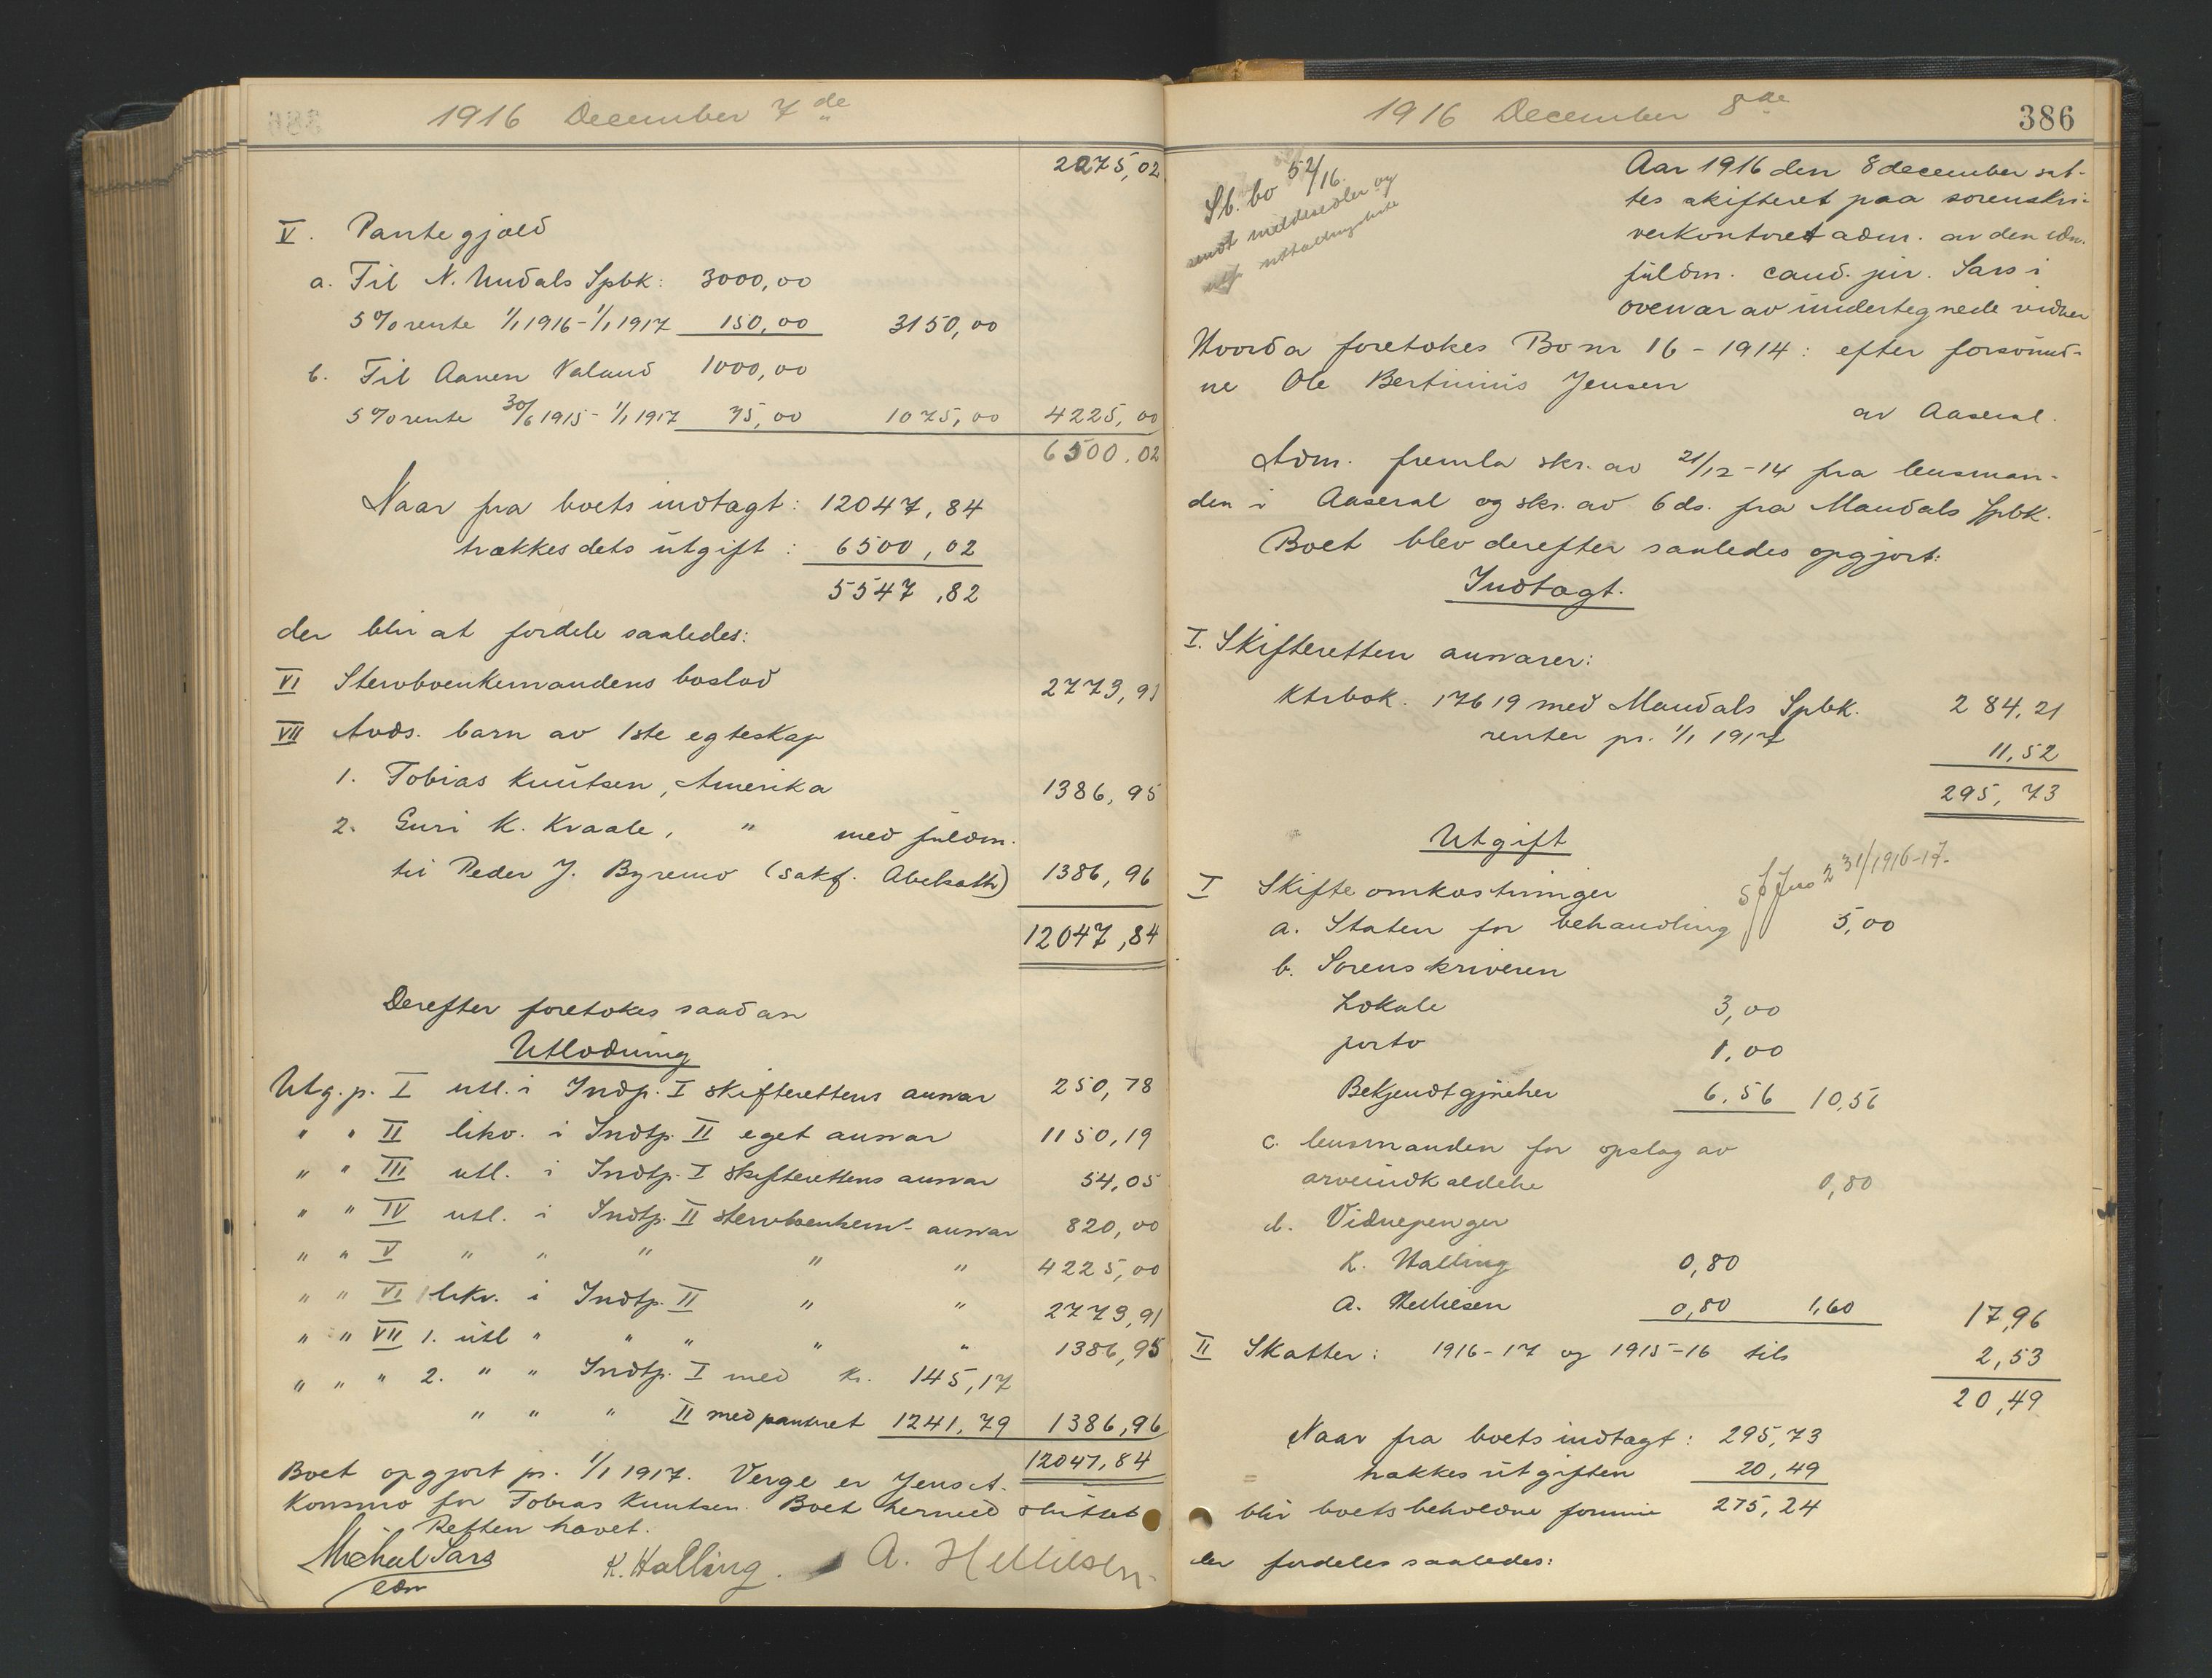 1916 December 7de
2275,02
V. Pantegjæld
a. Til N. Undals Spbk: 3000,00
5% rente 1/1 1916 - 1/1 1917 150,00 3150,00
b. Til Aanen Valand 1000,00
5% rente 30/6 1915 - 1/1 1917 75,00 1075,00 4225,00
6500,02
Naar fra boets indtægt: 12047,84
trækkes dets utgift: 6500,02
5547,82
der blir at fordele saaledes:
VI Stervboenkemandens boslod 2773,91
VII Avds. barn av 1ste egteskap
1. Tobias Knutsen, Amerika 1386,95
2. Guri K. Kvaale, " med fuldm.
til Peder J. Byremo (sakf. Abelseth) 1386,96
12047,84
Derefter foretokes saadan
Utlodning
Utg.p. I utl. i Indp. I skifterettens ansvar 250,78
" " II likv. i Indtp. II eget ansvar 1150,19
" " III utl. i Indtp. I skifterettens ansvar 54,05
" " IV utl. i Indtp. II stervboenkem. ansvar 820,00
" " V " " " " " 4225,00
" " VI likv. i Indtp. II " " 2773,91
" " VII 1. utl " " " " " 1386,95
" " " 2. " " Indtp. I med kr. 145,17
" " " II med panteret 1241,79 1386,96
12047,84
Boet opgjort pr. 1/1 1917. Verge er Jens A.
Konsmo for Tobias Knutsen. Boet hermed sluttet
Retten hævet.
Michael Sars K. Halling. A. Hellesen
edm
1916 December 8de 386
Sb. bo 52/16.
sendt meldesedler og
Aar 1916 den 8 december sat-
tes skifteret paa sorenskri-
verkontoret adm. av den edsv.
fuldm. cand. jur. Sars i
overvær av undertegnede vidner
Hvorda foretokes Bo nr 16 - 1914: efter forsvund-
ne Ole Bertinius Jensen
av Aaseral.
Adm. fremla skr. av 21/12-14 fra lensman-
den i Aaseral og skr. av 6 ds. fra Mandals Spbk.
Boet blev derefter saaledes opgjort:
Indtægt.
I. Skifteretten ansvarer:
Ktrbok. 17619 med Mandals Spbk. 284,21
renter pr. 1/1 1917 11,52
295,73
Utgift
I Skifteomkostninger
231/1916-17.
a. Staten for behandling 5,00
b. Sorenskriveren
Lokale 3,00
porto 1,00
Bekjendtgjørelser 6,56 10,56
c. lensmanden for opslag av
arveindkaldelse 0,80
d. Vidnepenger
K. Halling 0,80
A. Hellesen 0,80 1,60 17,96
II Skatter: 1916-17 og 1915-16 tils 2,53
20,49
Naar fra boets indtægt: 295,73
trækkes utgiften 20,49
blir boets beholdne formue 275,24
der fordeles saaledes: